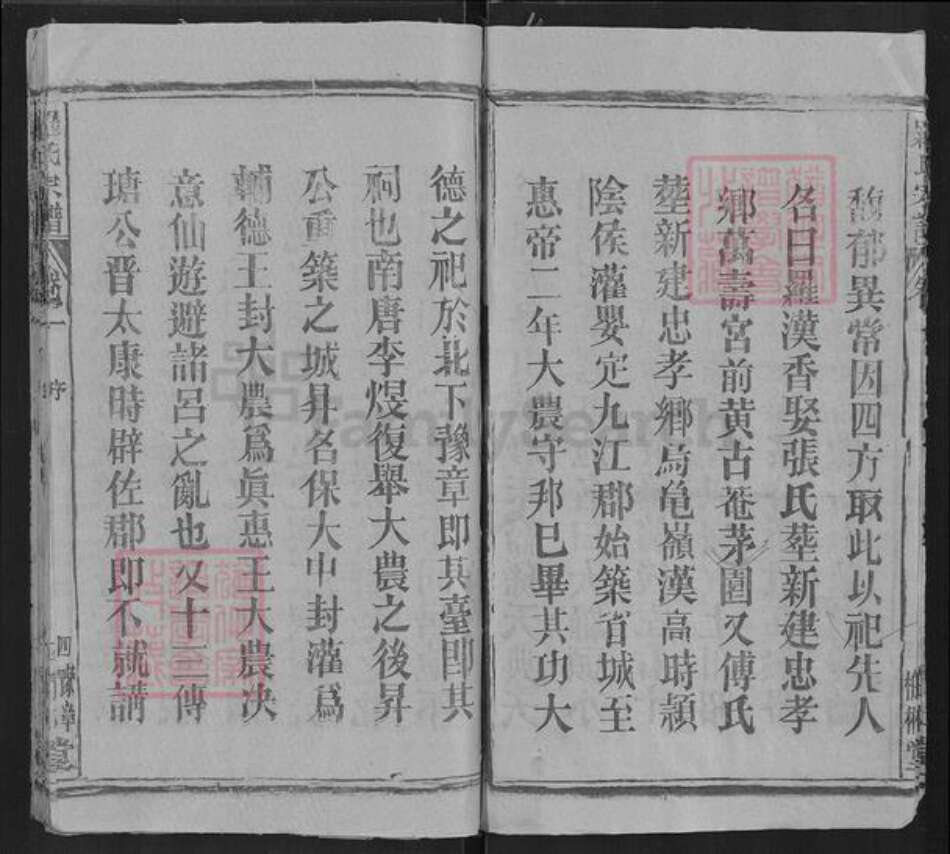 馥郁異常因四方取此以祀先人
名曰羅漢香娶張氏塟新建忠孝
鄉萬壽宮前黄古菴茅園又傅氏
塟新建忠孝鄉烏龟嶺漢高時潁
陰侯灌嬰定九江郡始築省城至
惠帝二年大農守邦已畢其功大
德之祀於北下豫章即其臺即其
祠也南唐李煜復舉大農之後昇
公重築之城昇名保大中封灌爲
輔德王封大農爲眞惠王大農决
意仙遊避諸呂之亂也又十三傳
瑭公晋太康時辟佐郡即不就講
羅氏宗譜
卷一
序
四
豫章堂
FamilySearch